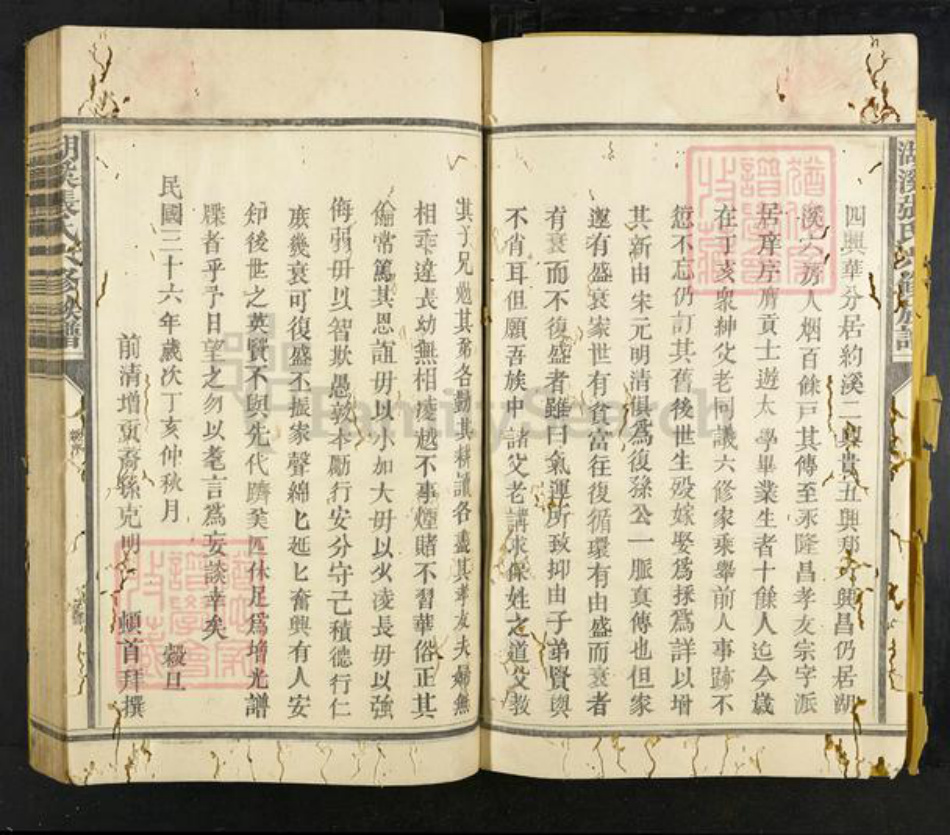 湖溪張氏六修族譜
四興華分居約溪二興貴五興邦六興昌仍居湖
溪六房人烟百餘戸其傳至永隆昌孝友宗字派
居庠序膺貢士遊太學畢業生者十餘人迄今歲
在丁亥衆紳父老同議六修家乘舉前人事跡不
愆不忘仍訂其舊後世生殁嫁娶爲採爲詳以增
其新由宋元明清俱爲復孫公一脈真傳也但家
遝有盛衰家世有貧富往復循環有由盛而衰者
有衰而不復盛者雖曰氣運所致抑由子弟賢與
不肖耳但願吾族中諸父老講求保姓之道父教
其子兄勉其弟各勤其耕讀各盡其孝友夫婦無
相乖違長幼無相凌越不事煙賭不習華俗正其
倫常篤其恩誼毋以小加大毋以少凌長毋以強
侮弱毋以智欺愚敦本勵行安分守己積德行仁
族幾衰可復盛不振家聲綿匕延匕奮興有人安
知後世之英賢不與先代躋美匹休足爲增光譜
牒者乎予日望之勿以耄言爲妄談幸矣
民國三十六年歲次丁亥仲秋月 穀旦
前清增貢裔孫克明 頓首拜撰
湖溪張氏六修族譜
FamilySearch